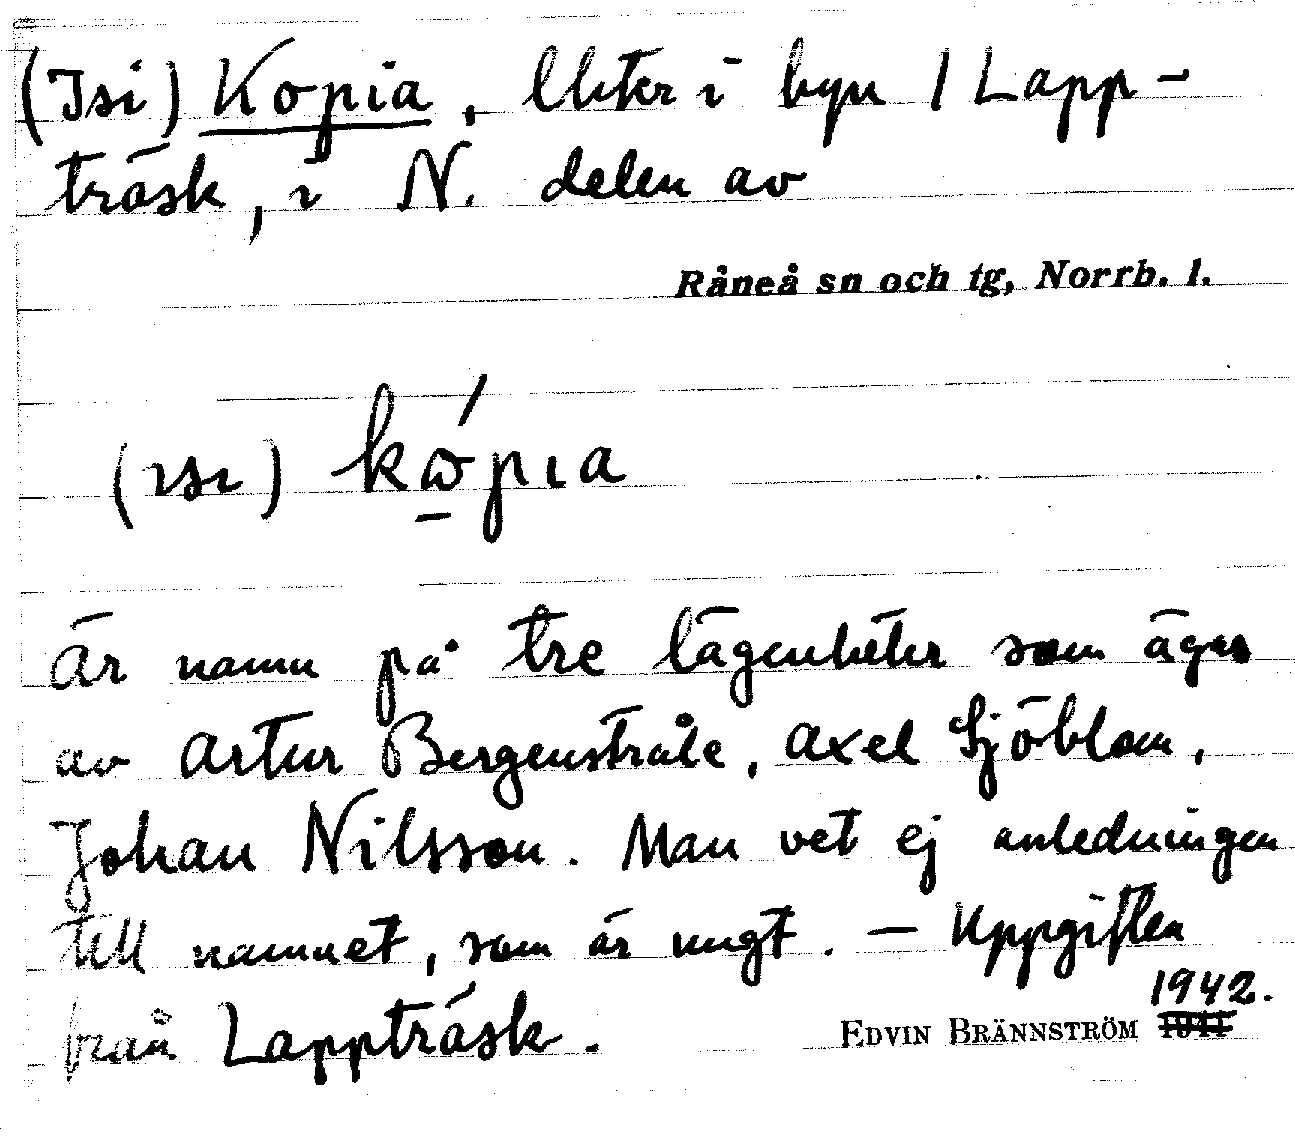 (Isi) Kopia, lhter i byn 1 Lapp-
träsk, i N. delen av
Råneå sn och tg, Norrb. l.
(ısı) kώ̱pıa
är namn på tre lägenheter som äges
av Artur Bergenstråle, Axel Sjöblom,
Johan Nilsson. Man vet ej anledningen
till namnet, som är ungt. — Uppgiften
från Lappträsk.
1942.
EDVIN BRÄNNSTRÖM 1941